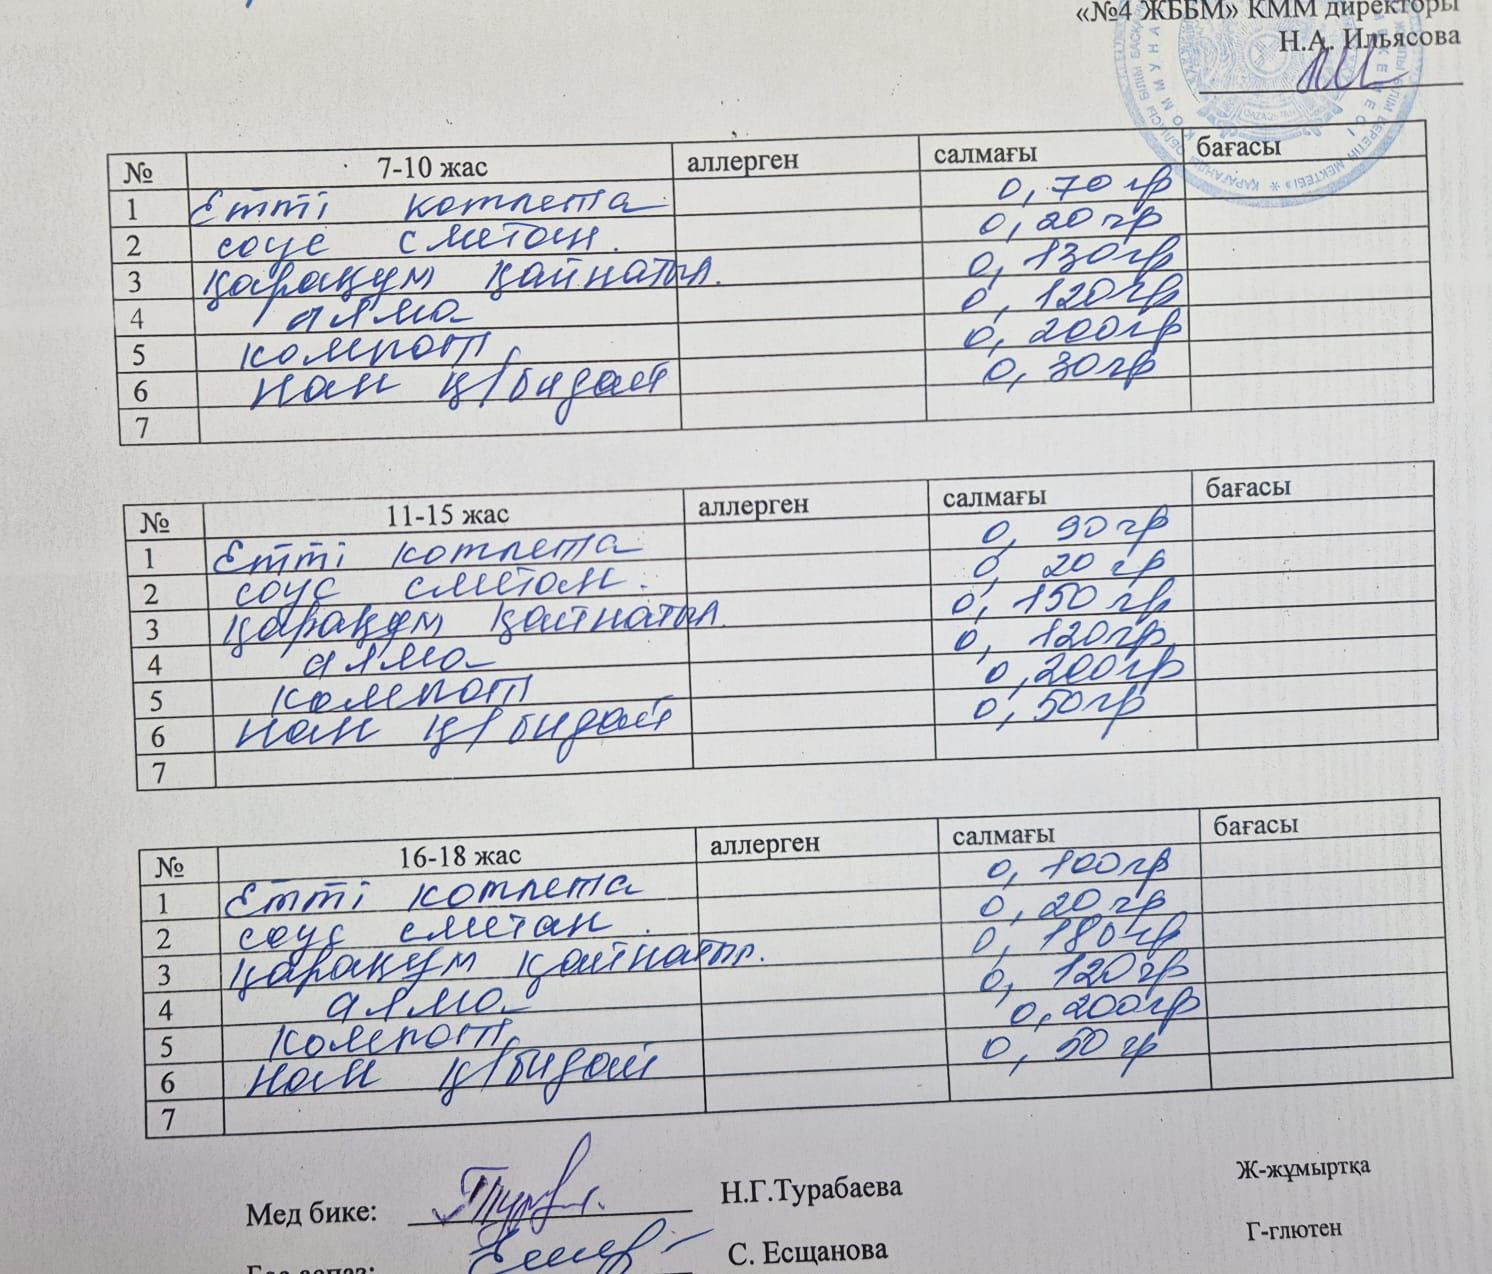 «№4 ЖББМ» КММ директоры
Н.А. Ильясова
№ 7-10 жас аллерген салмағы бағасы
1 Етті котлета 0,70 гр
2 соус сметан. 0,20 гр
3 қарақұм қайнатыл. 0,130 гр
4 алма 0,120 гр
5 компот 0,200 гр
6 нан қ/бидай 0,30 гр
7
№ 11-15 жас аллерген салмағы бағасы
1 Етті котлета 0,90 гр
2 соус сметан. 0,20 гр
3 қарақұм қайнатыл. 0,150 гр
4 алма 0,120 гр
5 компот 0,200 гр
6 нан қ/бидай 0,50 гр
7
№ 16-18 жас аллерген салмағы бағасы
1 Етті котлета 0,100 гр
2 соус сметан. 0,20 гр
3 қарақұм қайнатыл. 0,180 гр
4 алма 0,120 гр
5 компот 0,200 гр
6 нан қ/бидай 0,50 гр
7
Ж-жұмыртқа
Мед бике: Н.Г.Турабаева
Г-глютен
С. Есщанова